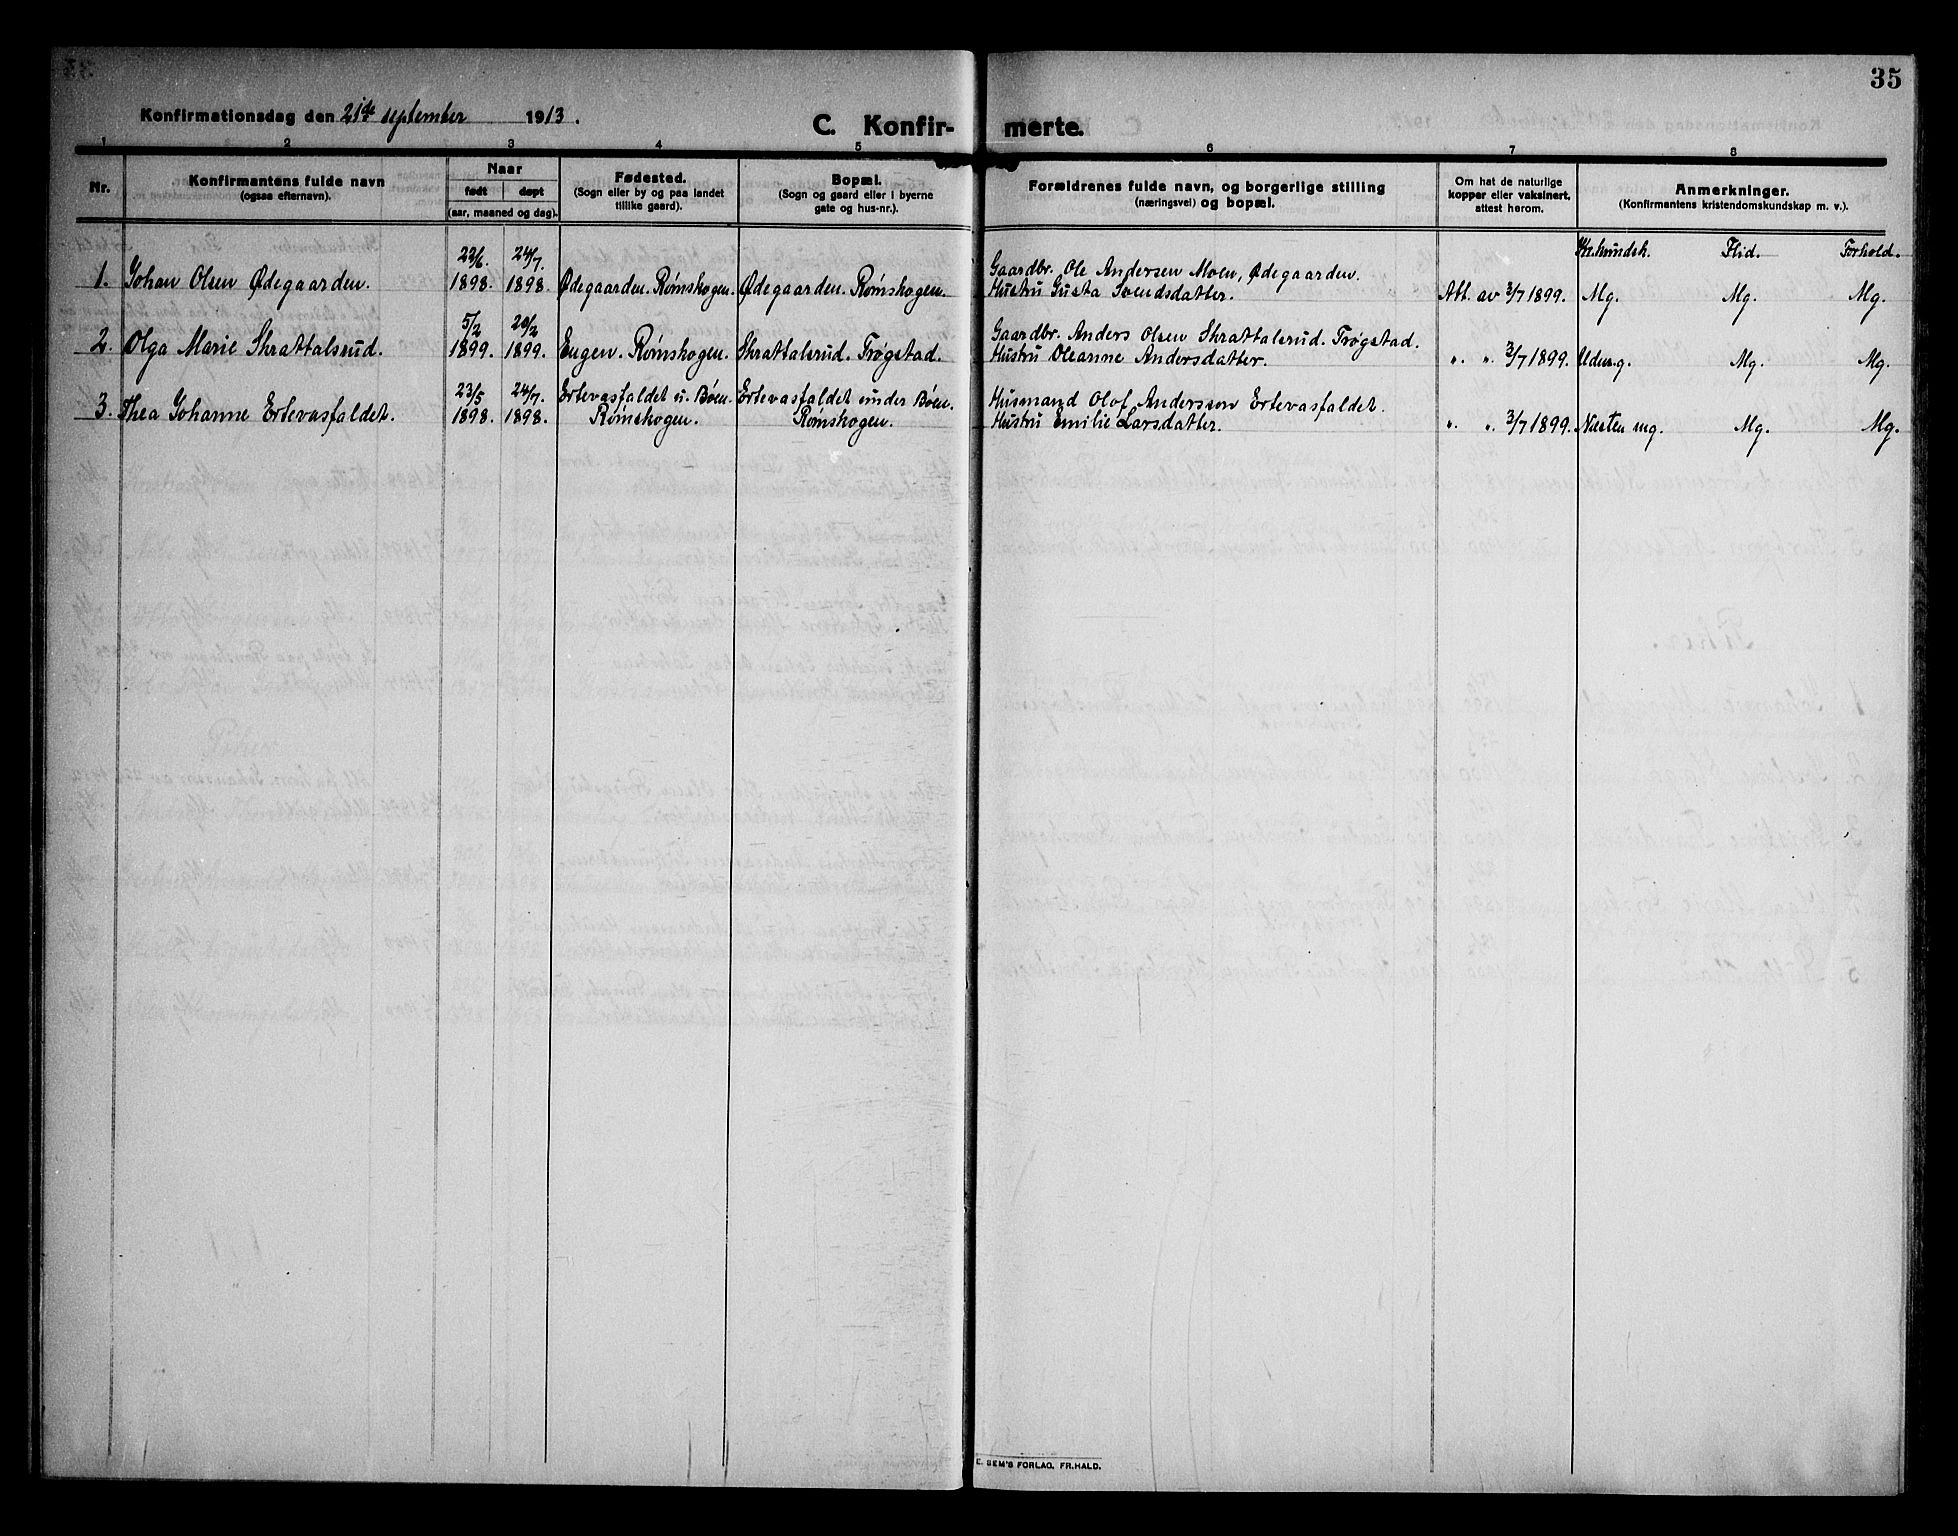 35
Konfirmationsdag den 21de september 1913.
C. Konfir- merte.
1 2 3 4 5 6 7 8
Nr.
Konfirmantens fulde navn
(ogsaa efternavn).
Naar
født døpt
(aar, maaned og dag).
Fødested.
(Sogn eller by og paa landet
tillike gaard).
Bopæl.
(Sogn og gaard eller i byerne
gate og hus-nr.).
Forældrenes fulde navn, og borgerlige stilling
(næringsvei) og bopæl.
Om hat de naturlige
kopper eller vaksinert,
attest herom.
Anmerkninger.
(Konfirmantens kristendomskundskap m. v.).
Kr.kundsk. Flid. Forhold.
22/6. 24/7. Gaardbr. Ole Andersen Moen, Ødegaarden.
1. Johan Olsen Ødegaarden. 1898. 1898. Ødegaarden. Rømskogen. Ødegaarden. Rømskogen. Hustru Gusta Svendsdatter. Att. av 3/7 1899. Mg. Mg. Mg.
5/2 20/2 Gaardbr. Anders Olsen Skrattalsrud. Trøgstad.
2. Olga Marie Skrattalsrud. 1899. 1899. Eugen. Rømskogen. Skrattalsrud. Trøgstad. Hustru Oleanne Andersdatter. " " 3/7 1899. Udm.g. Mg. Mg.
23/5 24/7. Ertevasfaldet u. Bøen. Ertevasfaldet under Bøen. Husmand Olof Andersson Ertevasfaldet.
3. Thea Johanne Ertevasfaldet. 1898. 1898. Rømskogen. Rømskogen. Hustru Emilie Larsdatter. " " 3/7 1899. Næsten mg. Mg. Mg.
E. SEM'S FORLAG, FR.HALD.